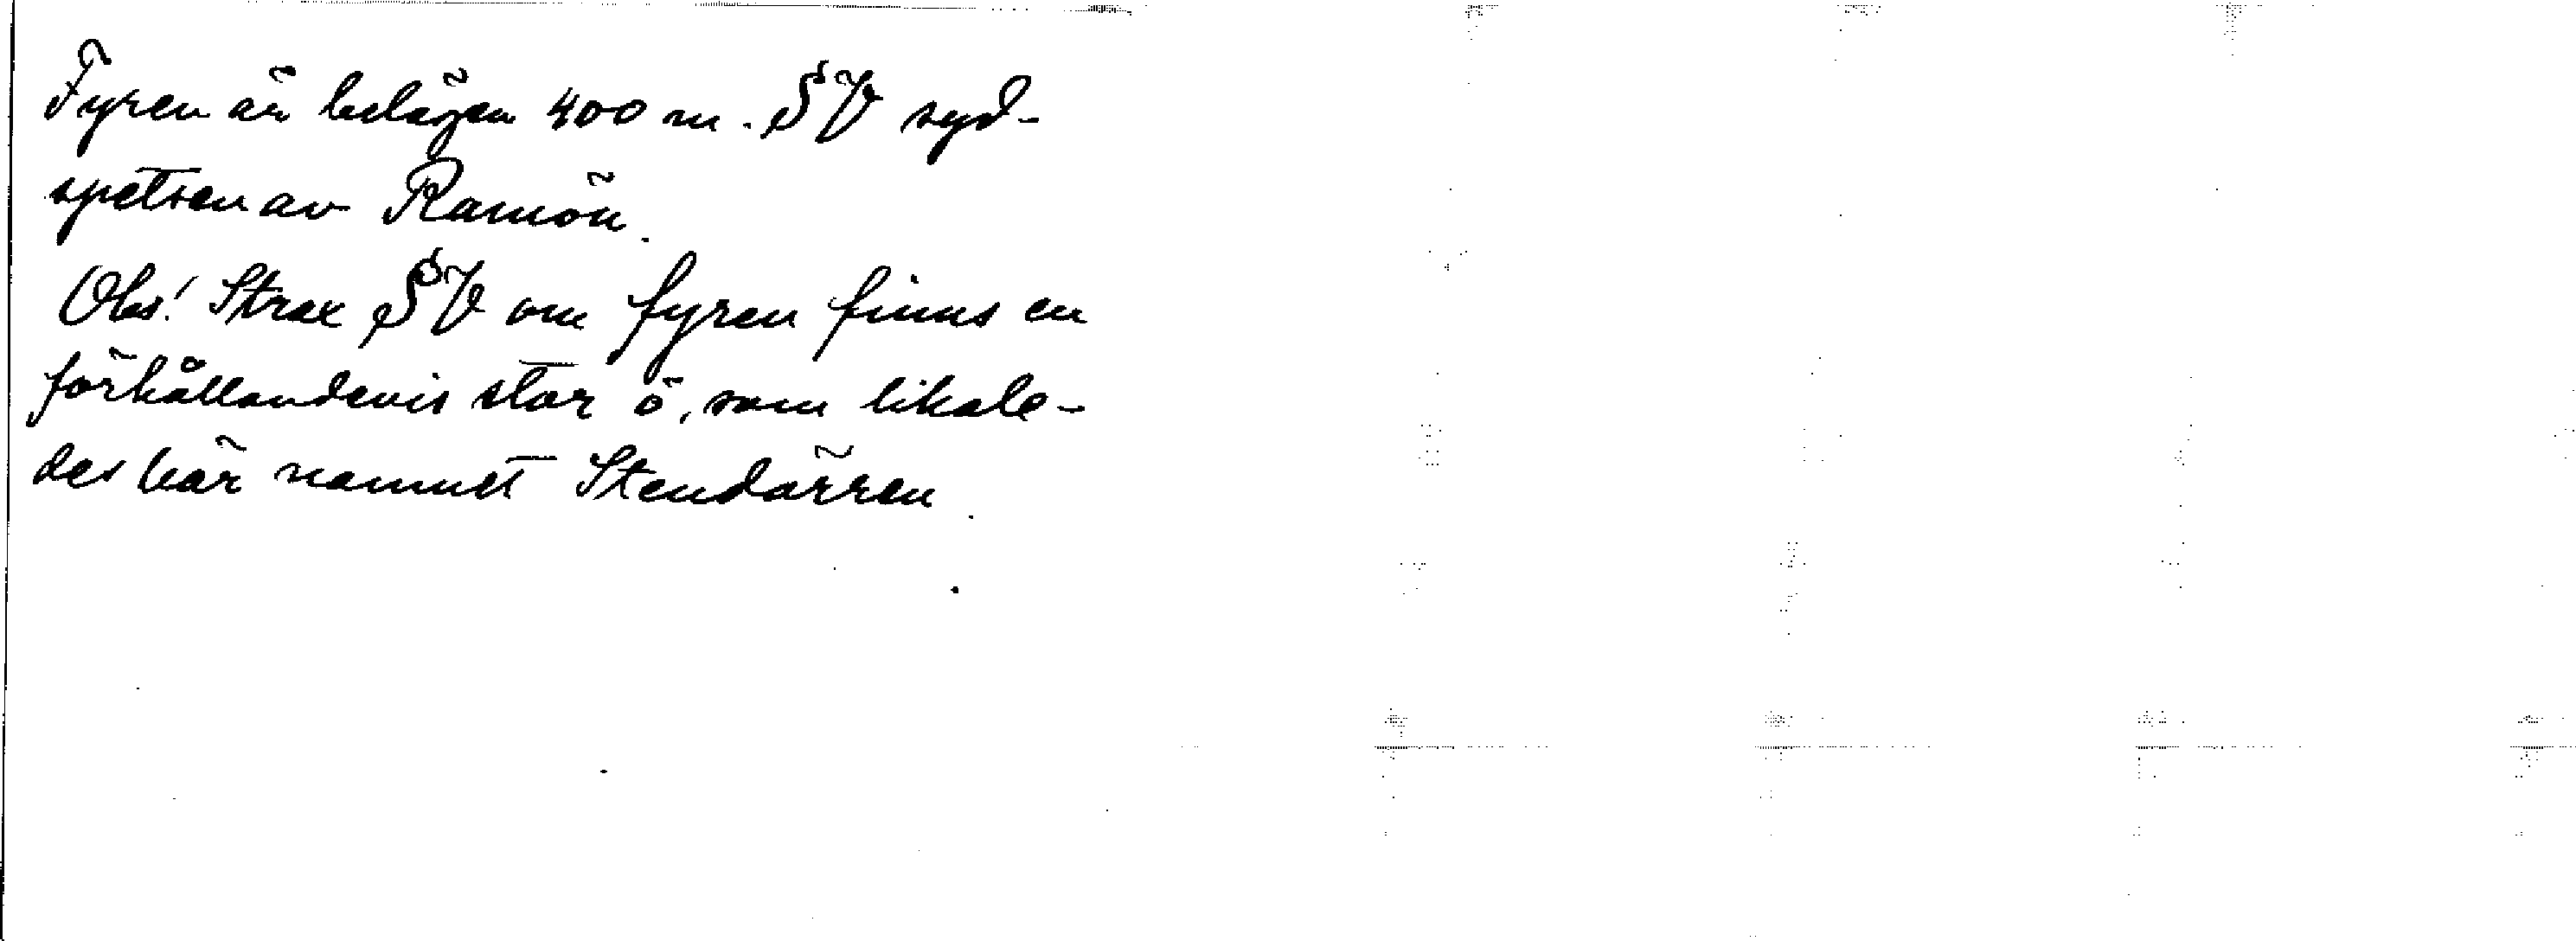 Fyren är belägen 400 m. SV syd-
spetsen av Ramön.
Obs! Strax SV om fyren finns en
förhållandevis stor ö, som likale-
des bär namnet Stendörren.